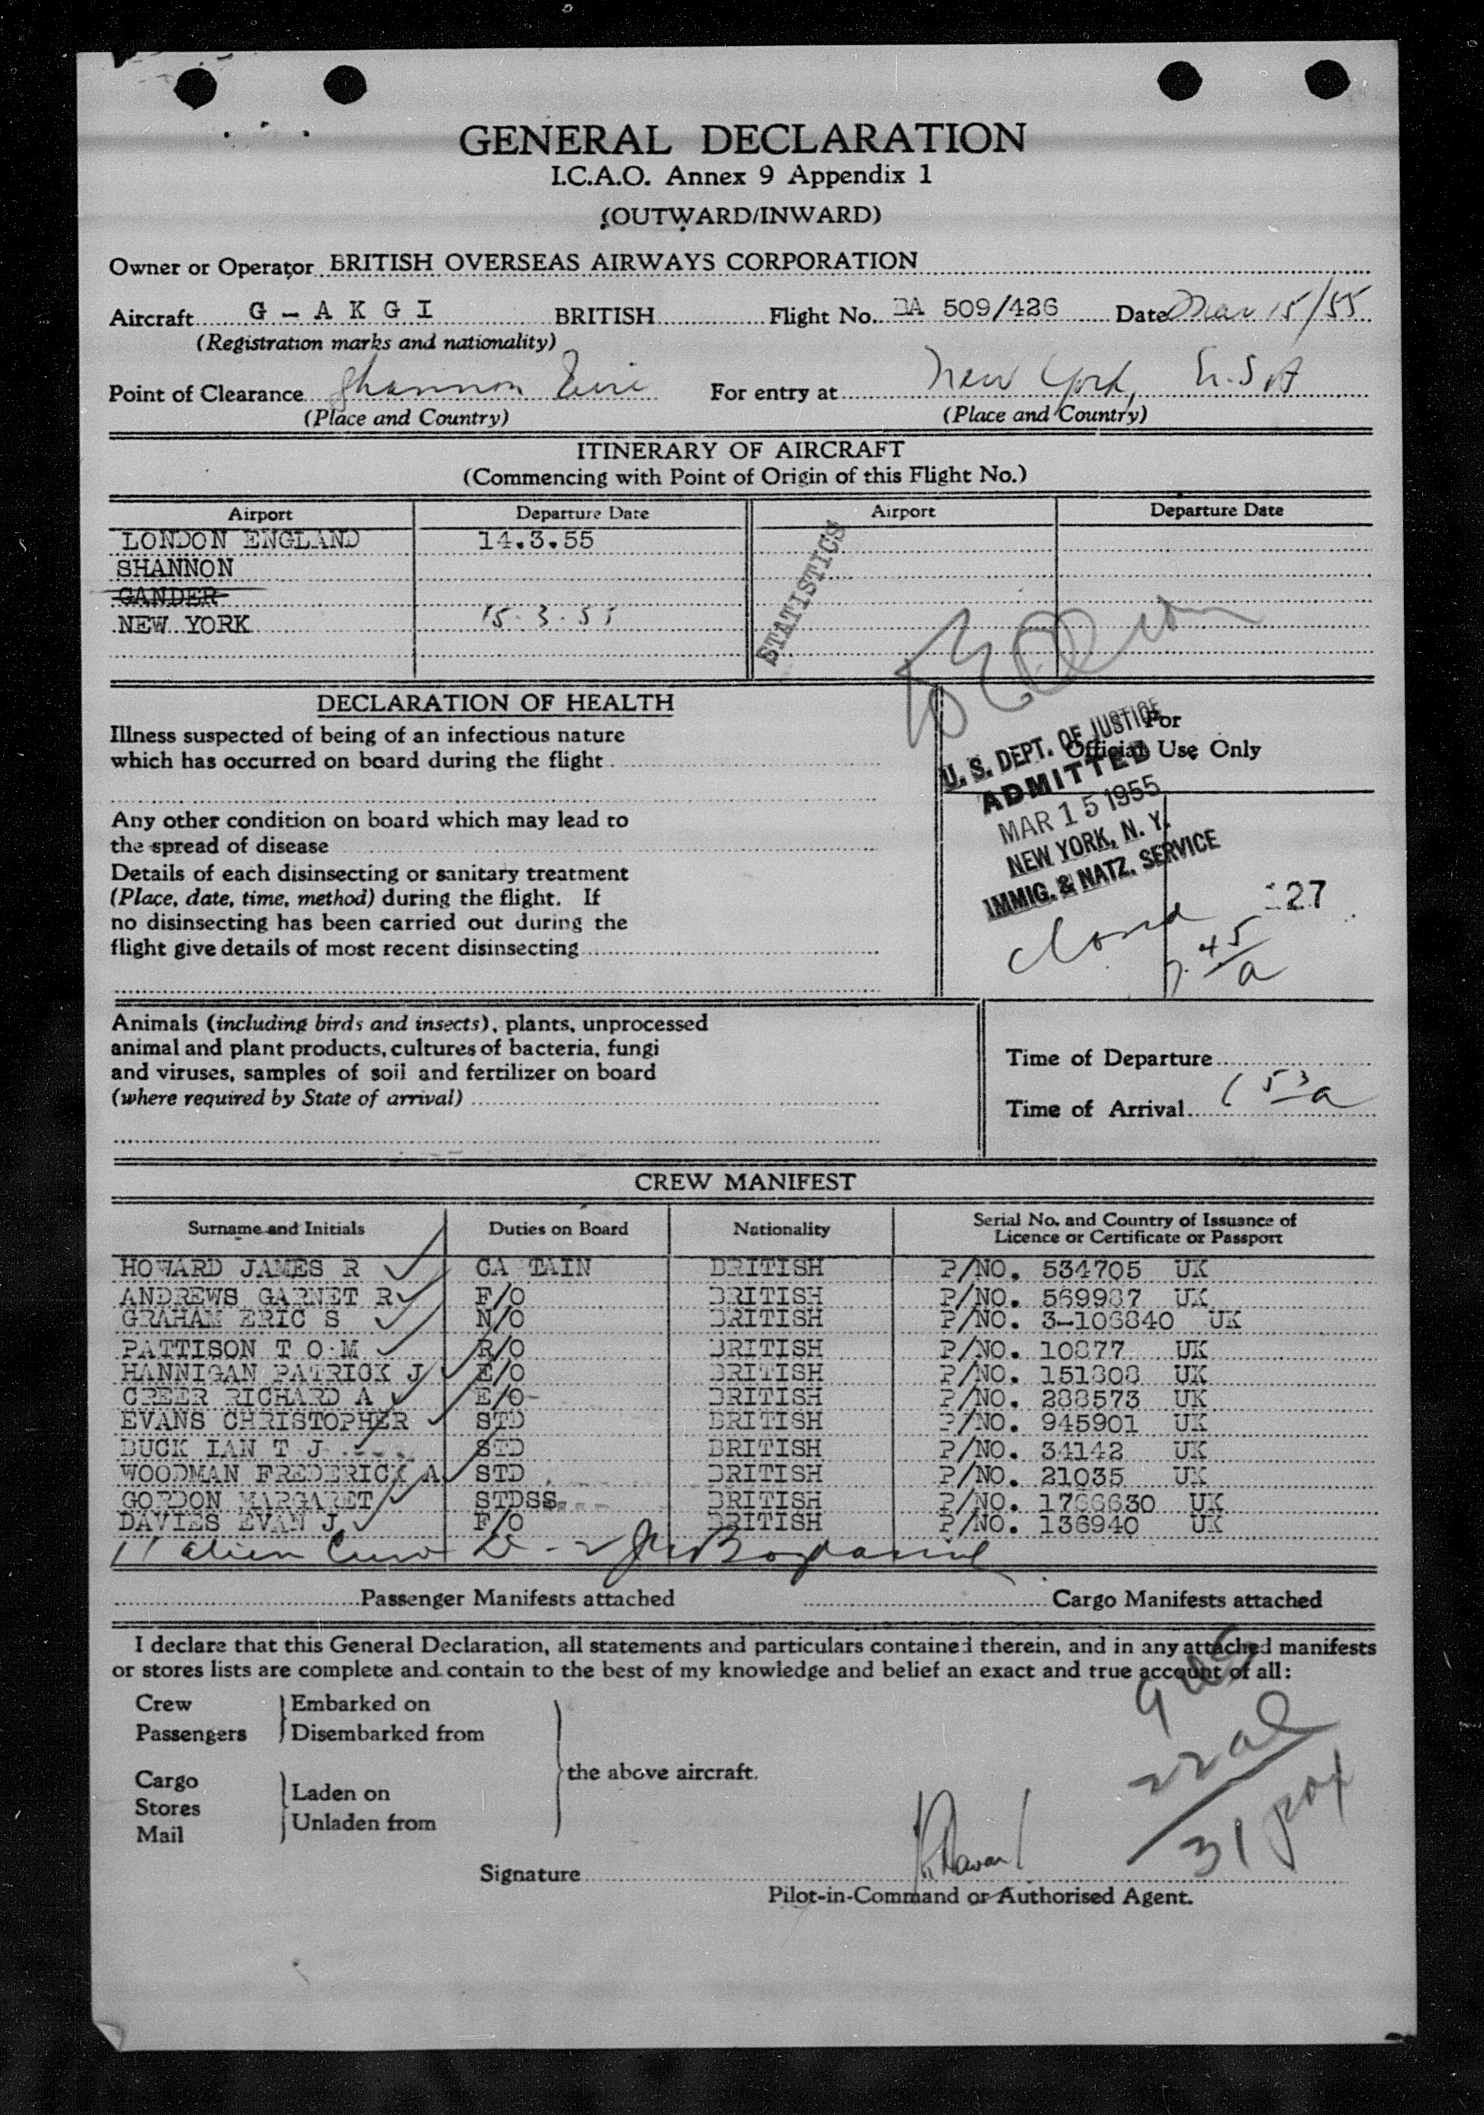 GENERAL DECLARATION
I.C.A.O. Annex 9 Appendix 1
(OUTWARD/INWARD)
Owner or Operator BRITISH OVERSEAS AIRWAYS CORPORATION
Aircraft G - A K G I BRITISH Flight No. BA 509/426 Date Mar 15/55
(Registration marks and nationality)
Point of Clearance Shannon Eire For entry at New York, U.S.A
(Place and Country) (Place and Country)
ITINERARY OF AIRCRAFT
(Commencing with Point of Origin of this Flight No.)
Airport Departure Date Airport Departure Date
LONDON ENGLAND 14.3.55
SHANNON
GANDER
NEW YORK 15.3.55
STATISTICS
DECLARATION OF HEALTH
Illness suspected of being of an infectious nature
which has occurred on board during the flight
Any other condition on board which may lead to
the spread of disease
Details of each disinsecting or sanitary treatment
(Place, date, time, method) during the flight. If
no disinsecting has been carried out during the
flight give details of most recent disinsecting
For
Official Use Only
U. S. DEPT. OF JUSTICE
ADMITTED
MAR 15 1955
NEW YORK, N. Y.
IMMIG. & NATZ. SERVICE
127
closed 7.45/a
Animals (including birds and insects), plants, unprocessed
animal and plant products, cultures of bacteria, fungi
and viruses, samples of soil and fertilizer on board
(where required by State of arrival)
Time of Departure
Time of Arrival 653a
CREW MANIFEST
Surname and Initials Duties on Board Nationality Serial No. and Country of Issuance of
Licence or Certificate or Passport
HOWARD JAMES R CA TAIN BRITISH P/NO. 534705 UK
ANDREWS GARNET R F/O BRITISH P/NO. 569987 UK
GRAHAM ERIC S N/O BRITISH P/NO. 3-106840 UK
PATTISON T O M R/O BRITISH P/NO. 10877 UK
HANNIGAN PATRICK J E/O BRITISH P/NO. 151808 UK
CREER RICHARD A E/O BRITISH P/NO. 288573 UK
EVANS CHRISTOPHER STD BRITISH P/NO. 945901 UK
DUCK IAN T J STD BRITISH P/NO. 34142 UK
WOODMAN FREDERICK A STD BRITISH P/NO. 21035 UK
GORDON MARGARET STDSS BRITISH P/NO. 1786630 UK
DAVIES EVAN J F/O BRITISH P/NO. 136940 UK
11 alien Crew D-2
Passenger Manifests attached Cargo Manifests attached
I declare that this General Declaration, all statements and particulars contained therein, and in any attached manifests
or stores lists are complete and contain to the best of my knowledge and belief an exact and true account of all:
Crew Embarked on
Passengers Disembarked from
the above aircraft.
Cargo Laden on
Stores
Mail Unladen from
9 usc
22 al
31 pax
Signature
Pilot-in-Command or Authorised Agent.